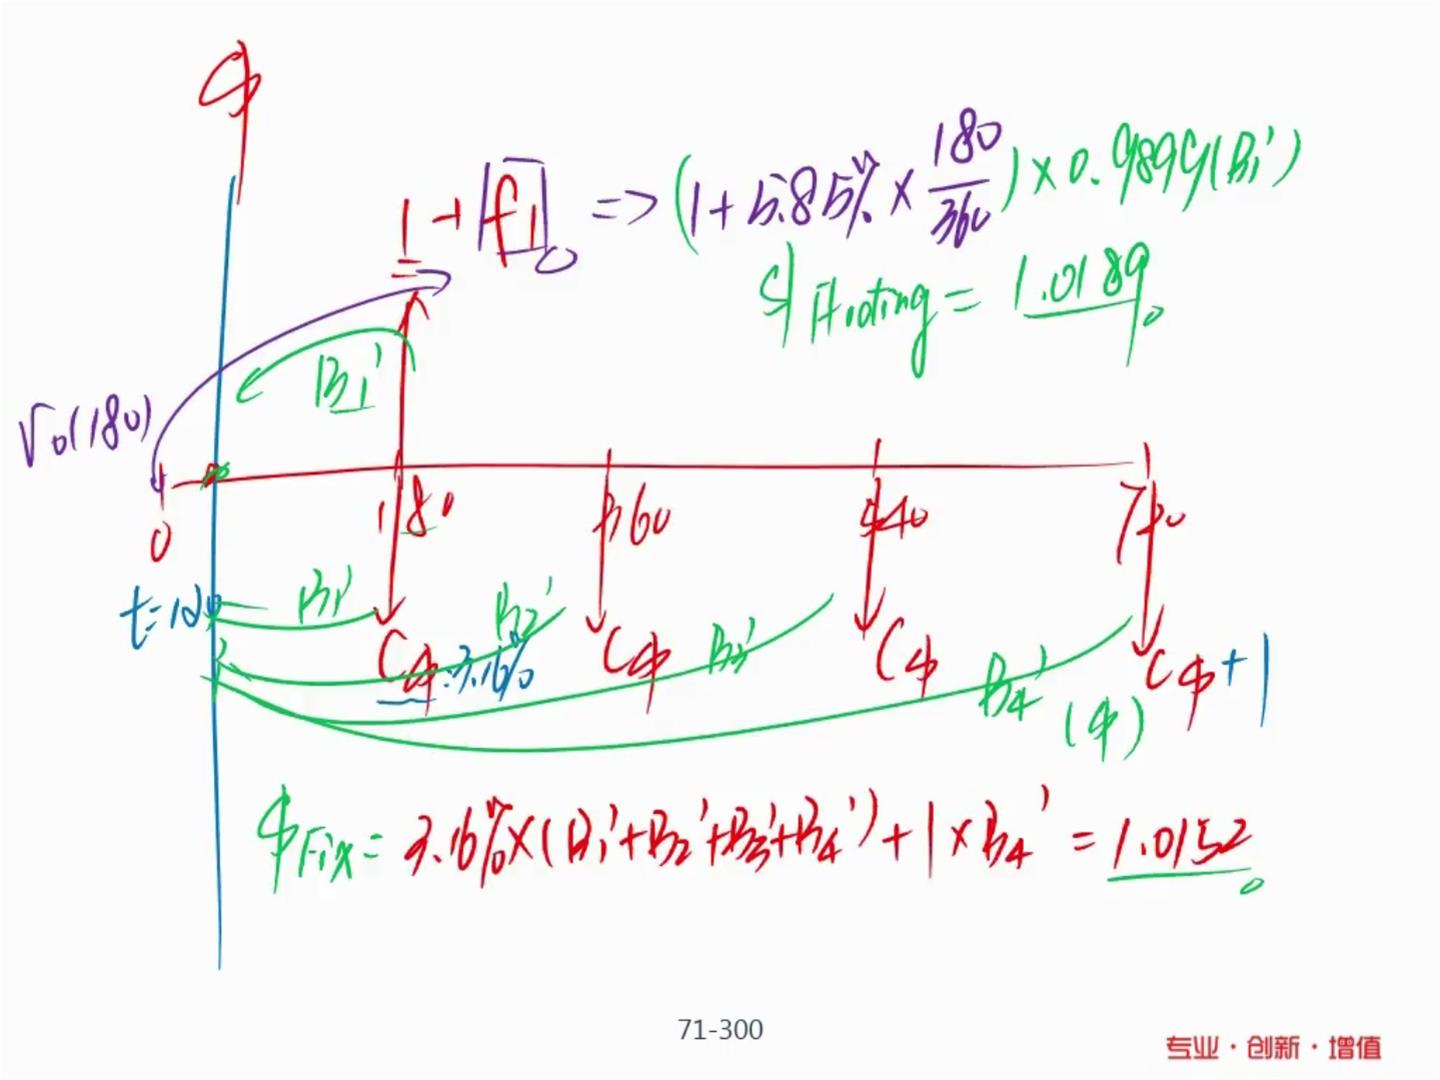 $
1 + f1 => (1+5.85% × 180/360) × 0.9899(B1')
$ Floating = 1.0189
B1'
r0(180)
0 180 360 540 720
t=120 B1' B2' B3' B4'
C$ =3.16% C$ C$ C$+1
($)
$Fix = 3.16%×(B1'+B2'+B3'+B4')+1×B4' = 1.0152
71-300
专业·创新·增值